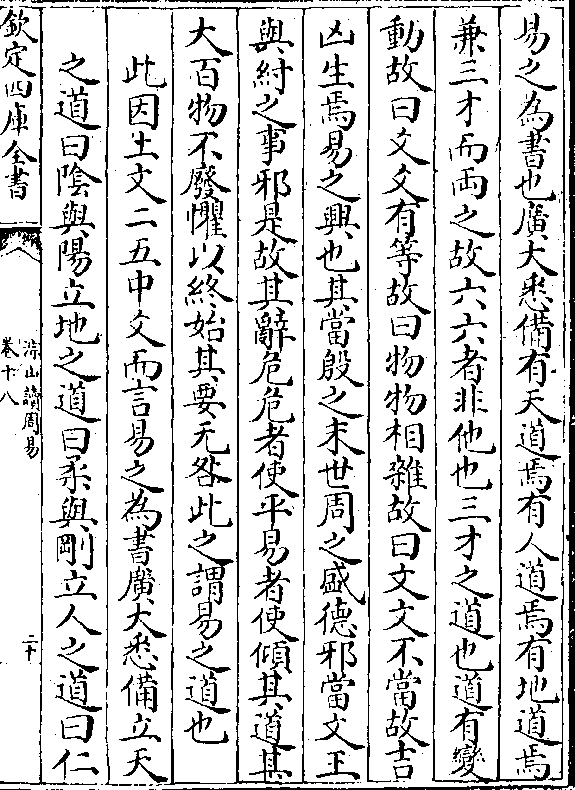 易之為書也廣大悉備有天道焉有人道焉有地道焉
兼三才而兩之故六六者非他也三才之道也道有變
動故曰爻爻有等故曰物物相雜故曰文文不當故吉
凶生焉易之興也其當殷之末世周之盛德邪當文王
與紂之事邪是故其辭危危者使平易者使傾其道其
大百物不廢懼以終始其要无咎此之謂易之道也
此因上文二五中爻而言易之為書廣大悉備立天
之道曰陰與陽立地之道曰柔與剛立人之道曰仁
欽定四庫全書
讀周易
卷十八
二十